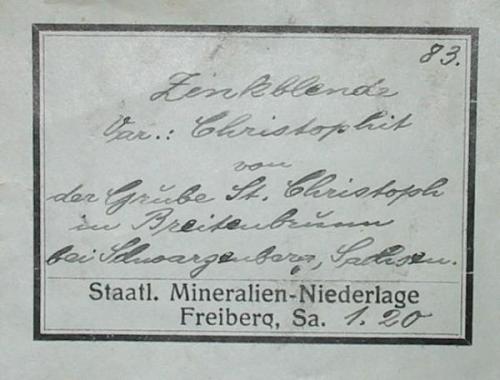 83.
Zinkblende
Var.: Christophit
von
der Grube St. Christoph
in Breitenbrunn
bei Schwarzenberg, Sachsen.
Staatl. Mineralien-Niederlage
Freiberg, Sa. 1.20